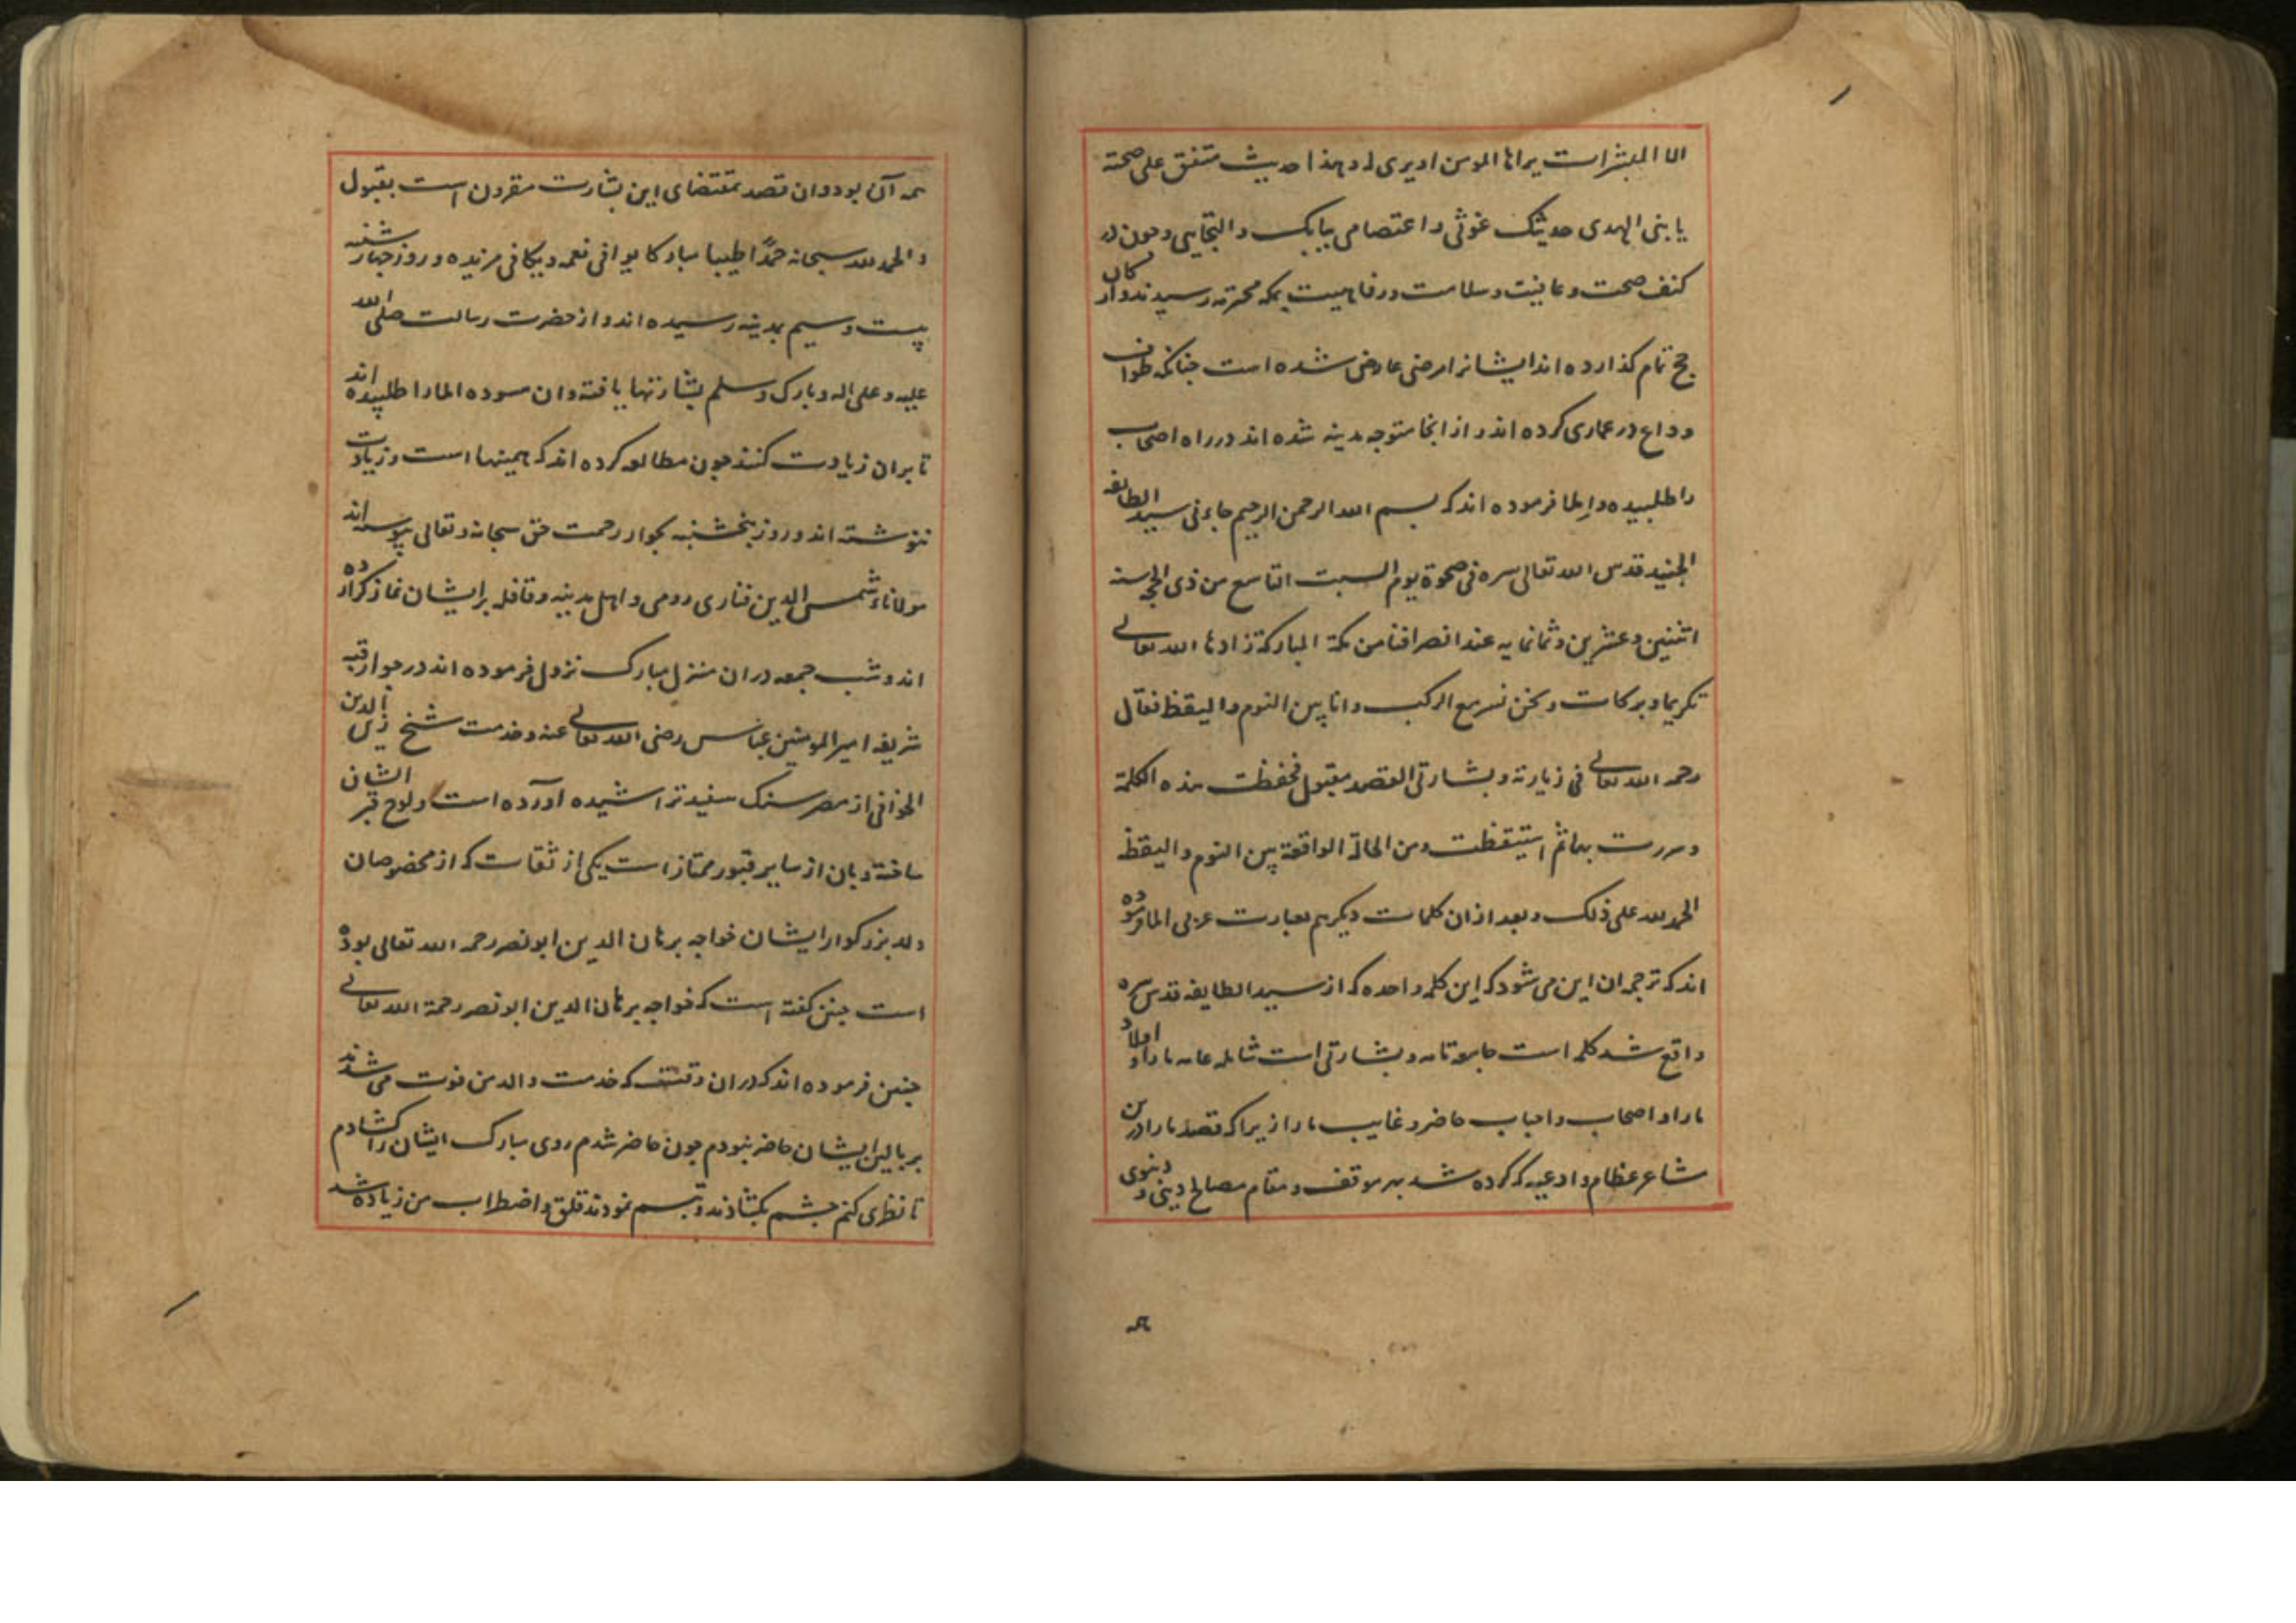 الا المبشرات یراها المومن او یری له و هذا حدیث متفق علی صحته
یا بنی الهدی حدیثک غوثی و اعتصامی ببابک و التجایی و چون در
کنف صحت و عافیت و سلامت و رفاهیت بمکه محترمه رسیدند و ارکان
حج تمام کذارده اند ایشانرا مرضی عارض شده است جنانکه طواف
وداع در عماری کرده اند و از انجا متوجه مدینه شده اند در راه اصحاب
را طلبیده و املا فرموده اند که بسم الله الرحمن الرحیم جاءنی سید الطایفه
الجنید قدس الله تعالی سره فی ضحوة یوم السبت التاسع من ذی الحجه سنه
اثنین و عشرین و ثمانمایه عند انصرافنا من مکة المبارکة زادها الله تعالی
تکریما و برکات و نحن نسیر مع الرکب و انا بین النوم و الیقظة فقال
رحمه الله تعالی فی زیارته و بشارتی القصد مقبول فحفظت هذه الکلمة
و سررت بها ثم استیقظت من الحالة الواقعة بین النوم و الیقظة
الحمد لله علی ذلک و بعد از ان کلمات دیکر هم بعبارت عربی املا فرموده
اند که ترجمه ان این می شود که این کلمه واحده که از سید الطایفه قدس سره
واقع شد کلمه است جامعه تامه و بشارتی است شامله عامه ما را و اولاد
ما را و اصحاب و احباب حاضر و غایب ما را زیرا که قصد ما را درین
مشاعر عظام و ادعیه که کرده شد بهر موقف و مقام مصالح دینی و دنیوی
همه
همه آن بود و ان قصد بمقتضای این بشارت مقرون است بقبول
و الحمد لله سبحانه حمدًا طیبا مبارکا یوافی نعمه و یکافی مزیده و روز چهارشنبه
بیست و سیم بمدینه رسیده اند و از حضرت رسالت صلی الله
علیه و علی اله و بارک و سلم بشارتها یافته و ان مسوده املا را طلبیده اند
تا بران زیادت کنند چون مطالعه کرده اند که همینها است و زیادت
ننوشته اند و روز پنجشنبه بجوار رحمت حق سبحانه و تعالی پیوسته اند
مولانا شمس الدین فناری رومی و اهل مدینه و قافله بر ایشان نماز کزارده
اند و شب جمعه در ان منزل مبارک نزول فرموده اند در جوار قبه
شریفه امیر المومنین عباس رضی الله تعالی عنه و خدمت شیخ زین الدین
الخوافی از مصر سنک سفید تراشیده آورده است و لوح قبر ایشان
ساخته و بان از سایر قبور ممتاز است یکی از ثقات که از مخصوصان
ولد بزرکوار ایشان خواجه برهان الدین ابو نصر رحمه الله تعالی بوده
است چنین کفته است که خواجه برهان الدین ابو نصر رحمة الله تعالی
چنین فرموده اند که در ان وقت که خدمت والد من فوت می شدند
بر بالین ایشان حاضر نبودم چون حاضر شدم روی مبارک ایشان را کشادم
تا نظری کنم چشم بکشادند و تبسم نمودند قلق و اضطراب من زیاده شد